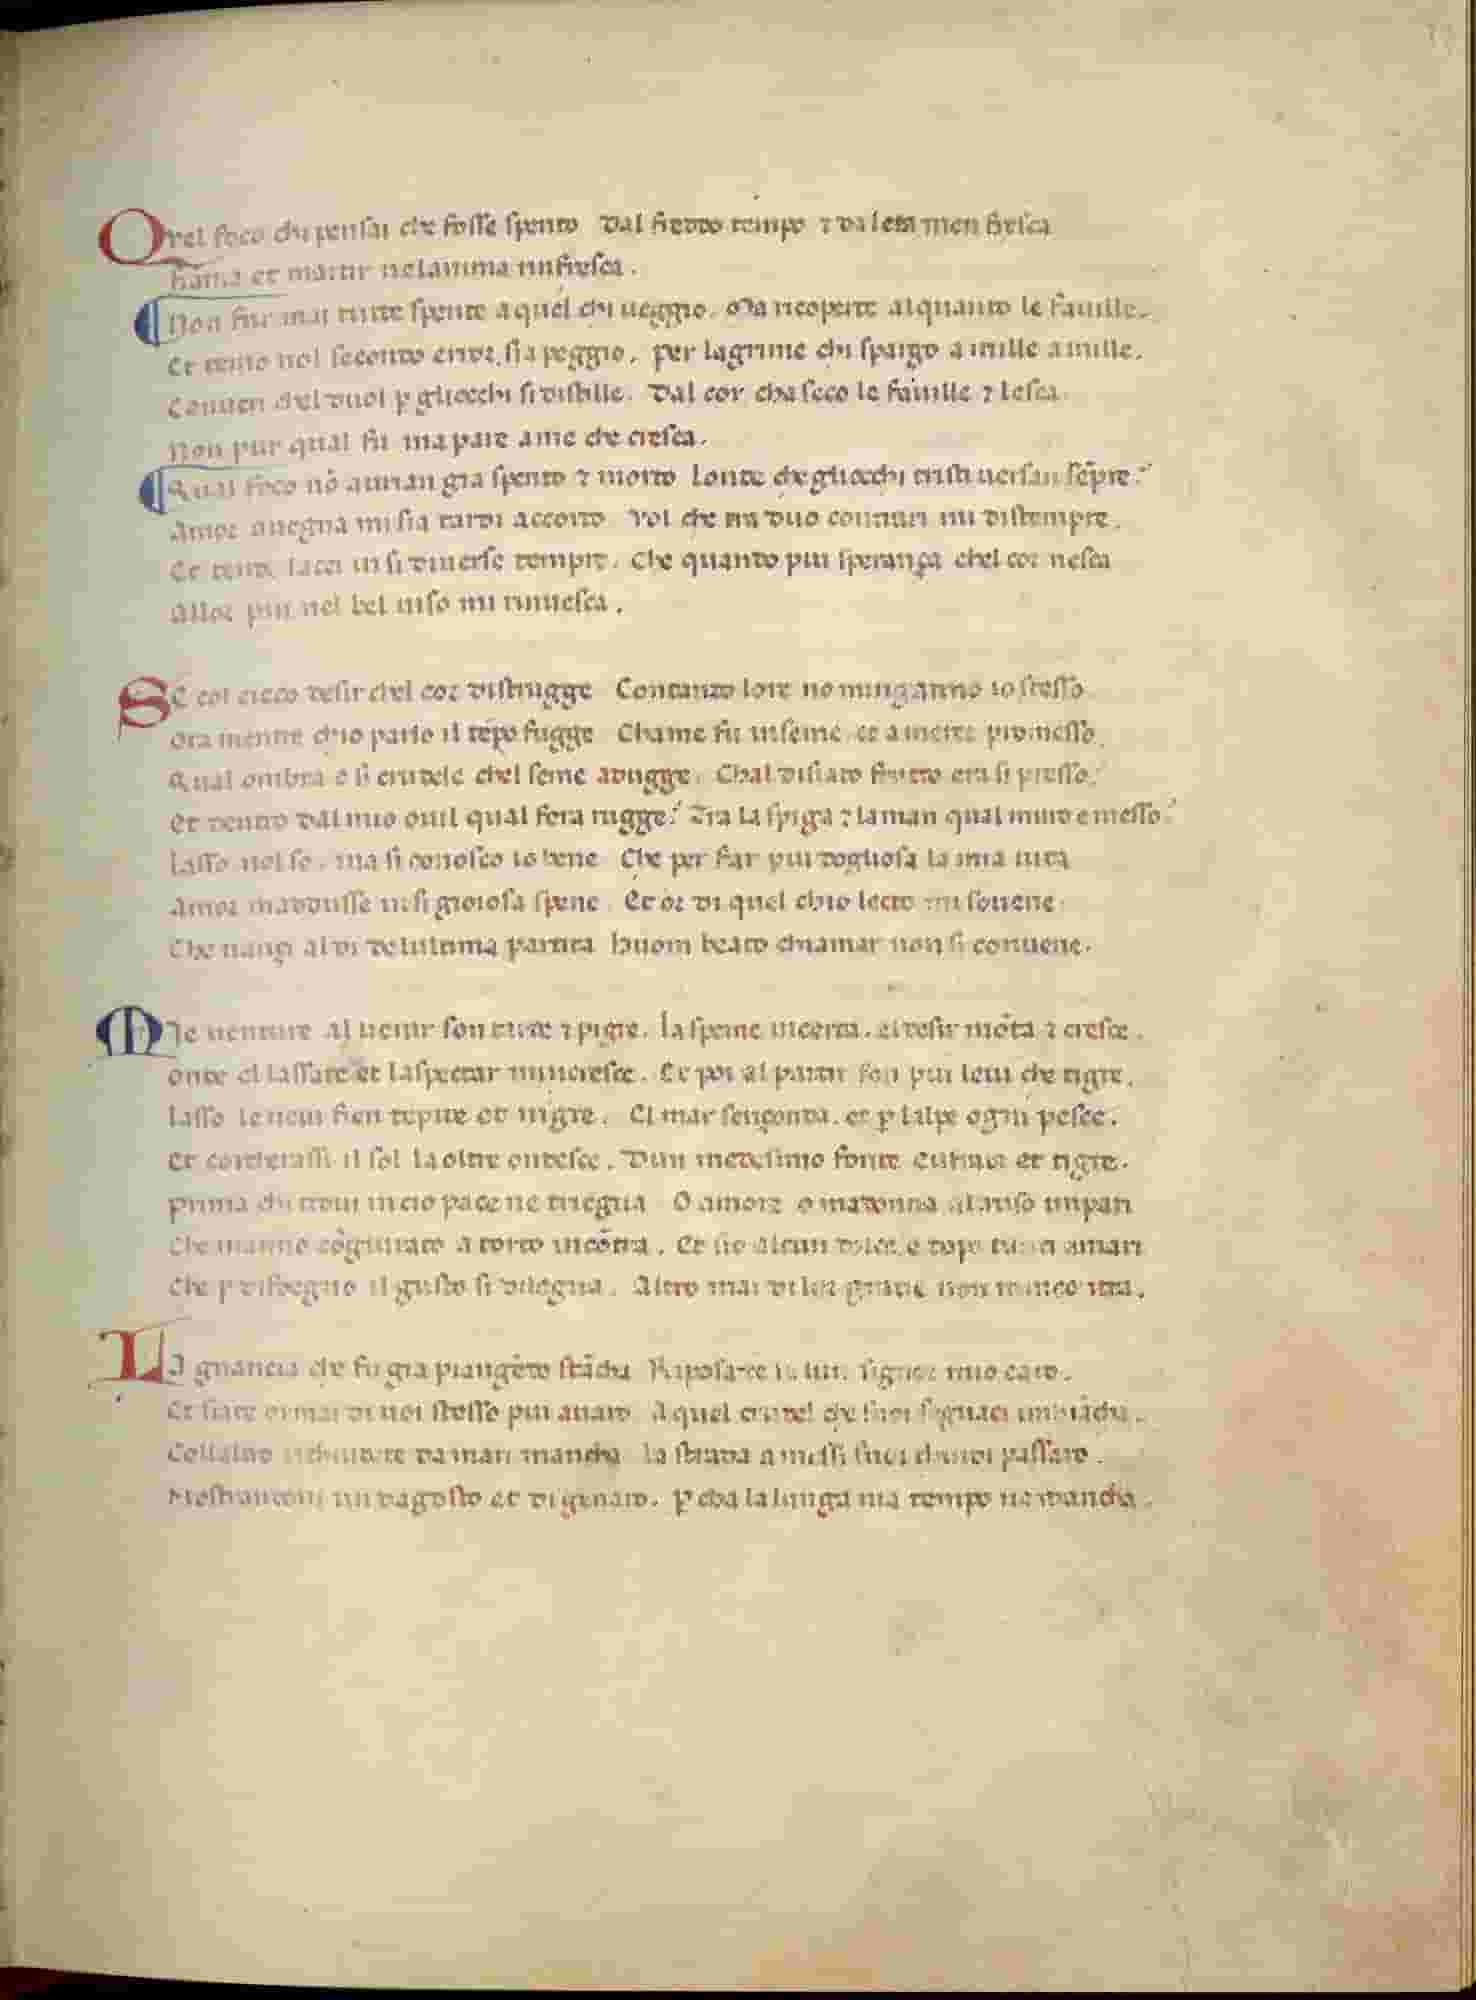 Qvel foco chi pensai che fosse spento Dal freddo tempo ⁊ da leta men fresca
fiama et martir nelanima rinfresca.
Non fur mai tutte spente aquel chi ueggio. Ma ricoperte alquanto le fauille.
Et temo nol secondo error sia peggio. per lagrime chi spargo amille amille.
Conuen chel duol ꝑ gliocchi si distille. Dal cor cha seco le fauille ⁊ lesca.
Non pur qual fu ma pare ame che cresca.
Qual foco nō aurian gia spento ⁊ morto Londe che gliocchi tristi uersan sēpre.
Amor auegna mi sia tardi accorto Vol che tra duo contrari mi distempre.
Et tende lacci in si diuerse tempre. Che quando piu sperança chel cor nesca
Allor piu nel bel uiso mi rinuesca.
SE col cieco desir chel cor distrugge Contando lore no minganno io stesso
Ora mentre chio parlo il tēpo fugge Chame fu inseme et a merce promesso.
Qual ombra e si crudele chel seme adugge. Chal disiato frutto era si presso.
Et dentro dal mio ouil qual fera rugge. Tra la spiga ⁊ laman qual muro e messo.
Lasso nol so. ma si conosco io bene Che per far piu dogliosa la mia uita
Amor maddusse in si gioiosa spene. Et or di quel chio lecto mi souene
Che nançi al di de lultima partita huom beato chiamar non si conuene.
MJe uenture al uenir son tarde ⁊ pigre. La speme incerta. el desir mōta ⁊ cresce.
onde el lassare et laspectar mincresce. Et poi al partir son piu leui che tigre.
Lasso le neui fien tepide et nigre. El mar sençonda. et ꝑ lalpe ogni pesce.
Et corcherassi il sol la oltre ondesce. Dun medesimo fonte eufrate et tigre.
Prima chi troui in cio pace ne triegua O amore o madonna altruso impari
Che manno cōgiurato a torto incōtra. Et sio alcun dolce. e dopo tanti amari
Che ꝑ disdegno il gusto si dilegua. Altro mai di lor gratie non mincontra.
LA guancia che fu gia piangēdo stācha Riposate su lun. signor mio caro.
Et siate ormai di uoi stesso piu auaro A quel crudel che suoi seguaci imbiācha.
Collaltro richiudete da man mancha La strada a messi suoi chindi passaro.
Mostrandoui un dagosto et di genaro. ꝑ cha la lunga uia tempo ne mancha.